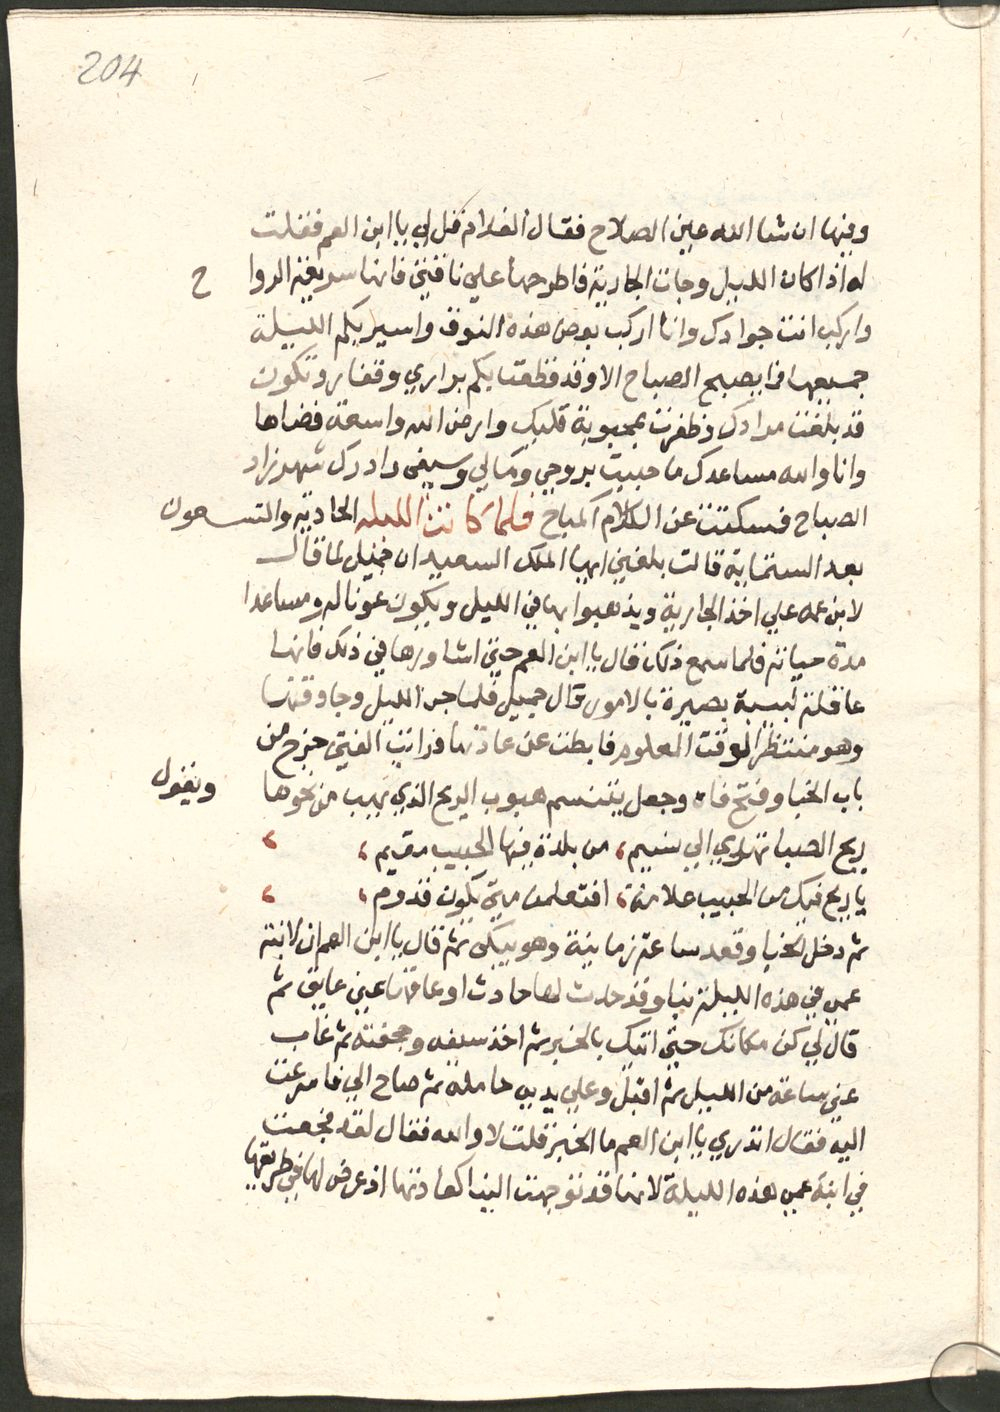 204
وفيها ان شا الله عين الصلاح فقال الغلام قل لي يا ابن العم فقلت
له اذا كان الليل وجات الجارية فاطرحها علي ناقتي فانها سريعة الروا ح
واركب انت جوادك وانا اركب بعض هذه النوق واسير بكم الليلة
جميعها فما يصبح الصباح الا وقد قطعت بكم براري وقفار وتكون
قد بلغت مرادك وظفرت بمحبوبة قلبك وارض الله واسعة فضاها
وانا والله مساعدك ما حييت بروحي ومالي وسيفي وادرك شهرزاد
الصباح فسكتت عن الكلام المباح فلما كانت الليلة الحادية والتسعون
بعد الستماية قالت بلغني ايها الملك السعيد ان جميل لما قال
لابن عمه علي اخذ الجارية ويذهبوا بها في الليل ويكون عونا له ومساعدا
مدة حياته فلما سمع ذلك قال يا ابن العم حتي اشاورها في ذلك فانها
عاقلة لبيبة بصيرة بالامور قال جميل فلما جن الليل وجا وقتها
وهو منتظر الوقت المعلوم فابطت عن عادتها فرايت الفتي خرج من
باب الخبا وفتح فاه وجعل يتنسم هبوب الريح الذي يهب من نحوها ويقول
ريح الصبا تهدي الي نسيم ، من بلدة فيها الحبيب مقيم ،
يا ريح فيك من الحبيب علامة ، افتعلمن متي يكون قدوم ،
ثم دخل الخبا وقعد ساعة زمانية وهو يبكي ثم قال يا ابن العم ان لابنة
عمي في هذه الليلة نبا وقد حدث لها حادث او عاقها عني عايق ثم
قال لي كن مكانك حتي اتيك بالخبر ثم اخذ سيفه وجحفته ثم غاب
عني ساعة من الليل ثم اقبل وعلي يديه حامله ثم صاح الي فاسرعت
اليه فقال اتدري يا ابن العم ما الخبر فقلت لا والله فقال لقد فجعت
في ابنة عمي هذه الليلة لانها قد توجهت الينا كعادتها اذ عرض لها في طريقها